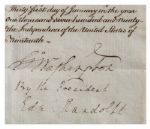 thirty first day of January in the year
One thousand seven hundred and ninety
the Independence of the United States of
G. Washington
By the President
Edm. Randolph